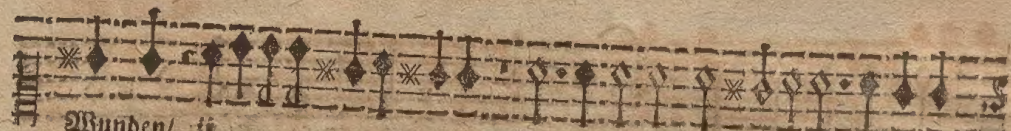 Wunden/ ij